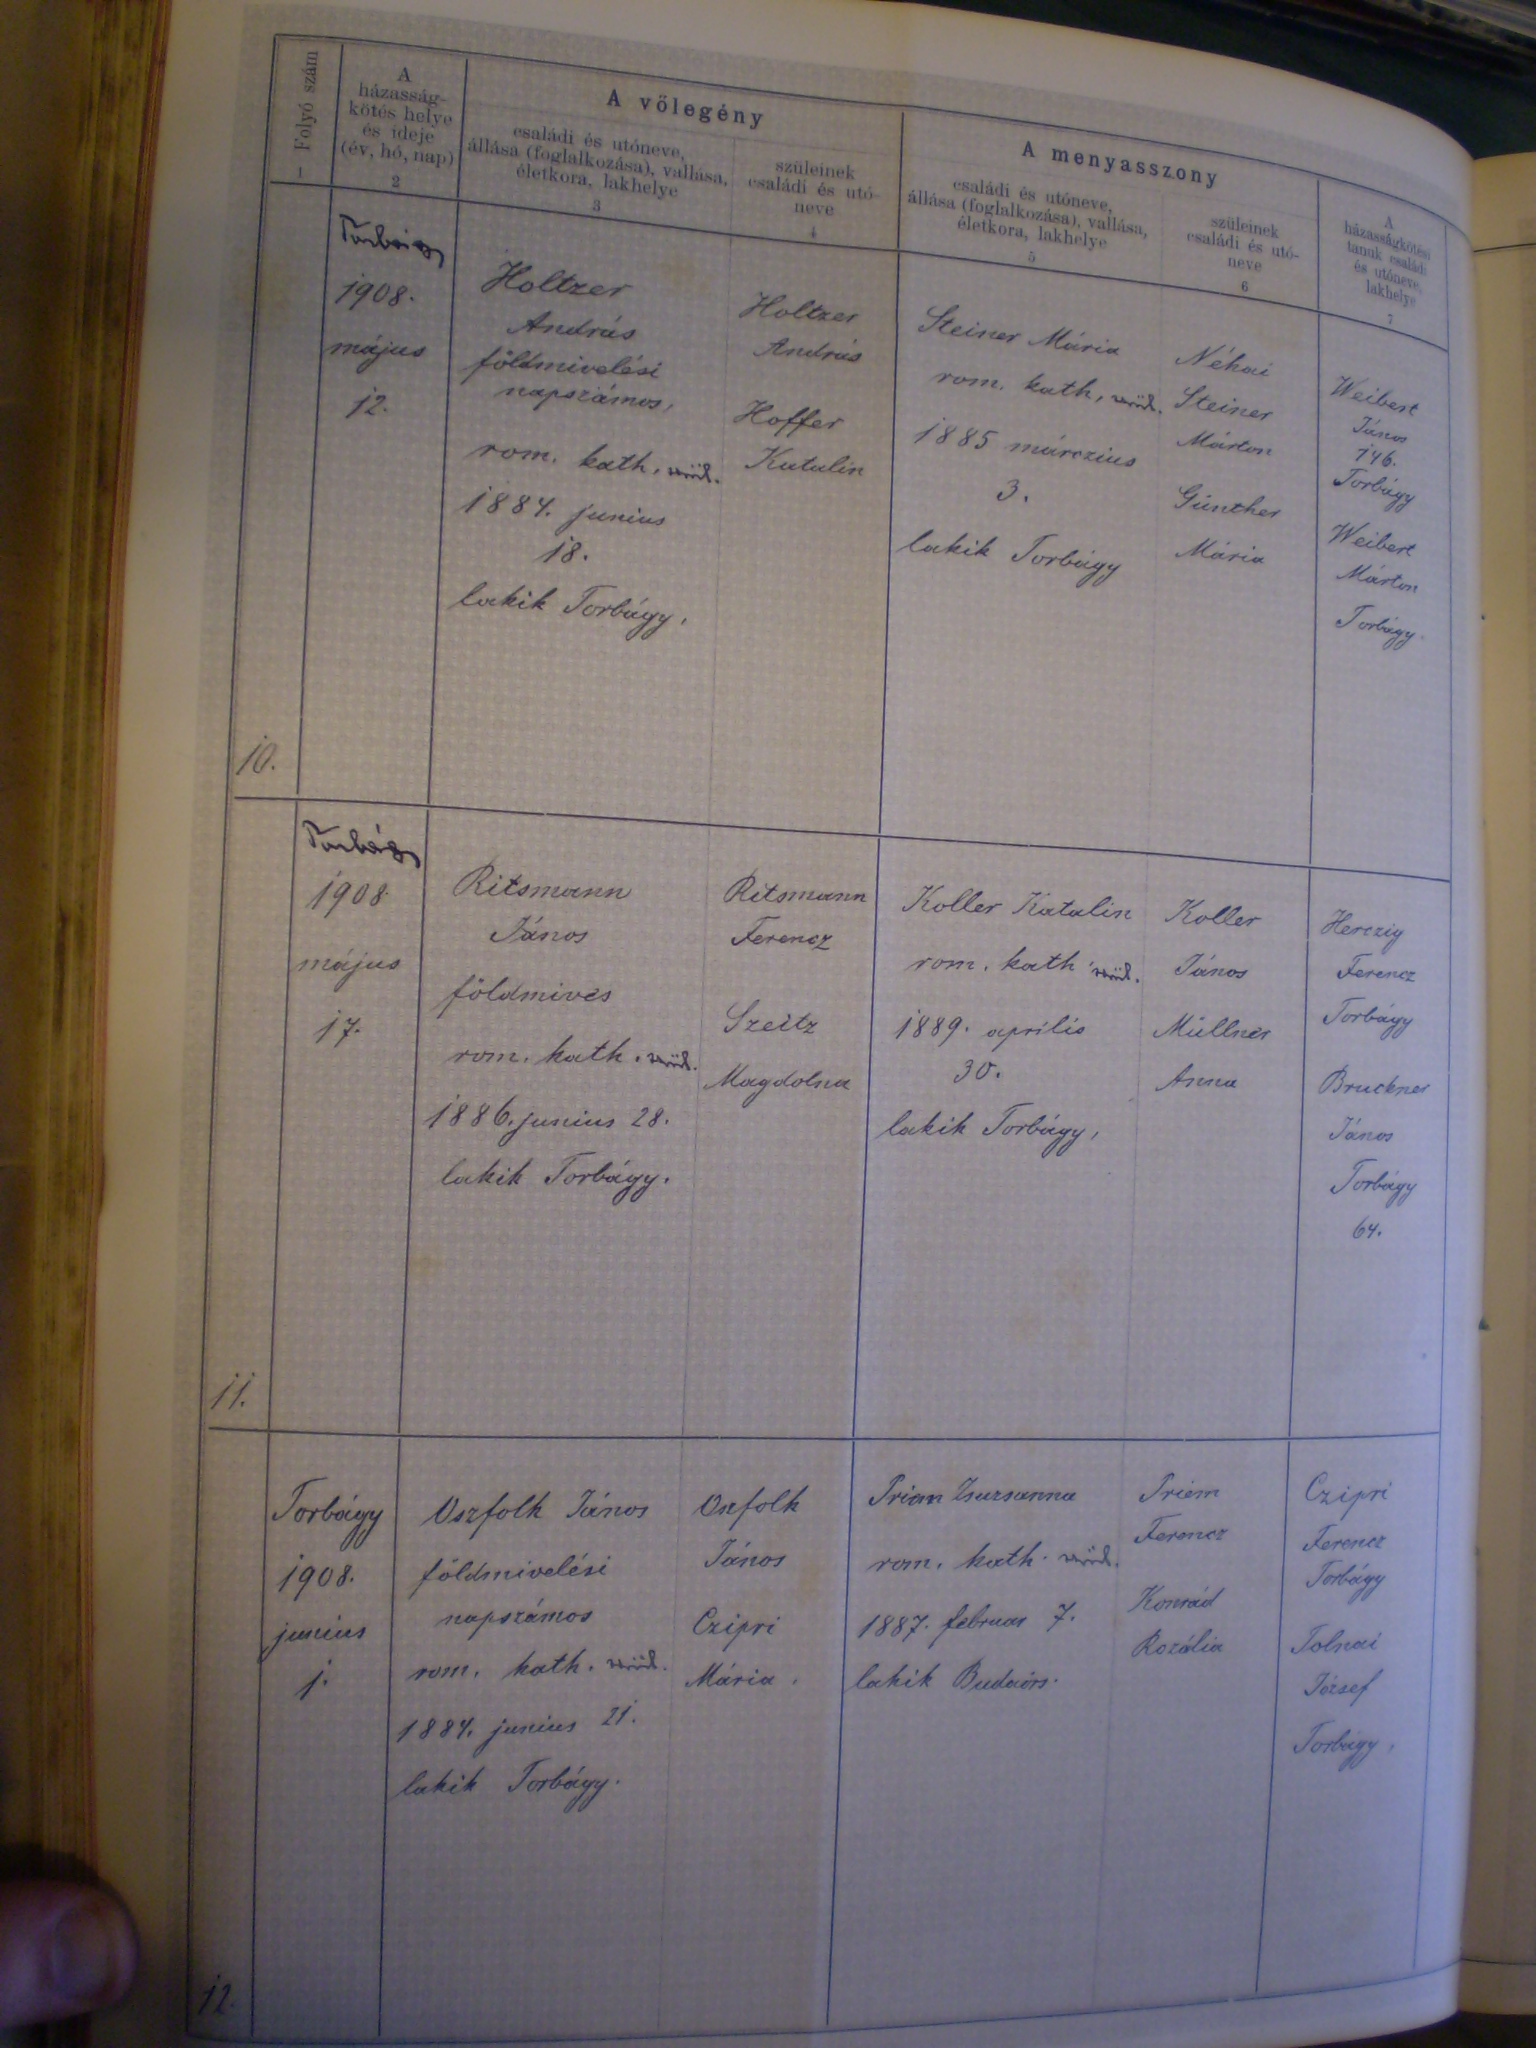 Folyó szám
1
A
házasság-
kötés helye
és ideje
(év, hó, nap)
2
A vőlegény
családi és utóneve,
állása (foglalkozása), vallása,
életkora, lakhelye
3
szüleinek
családi és utó-
neve
4
A menyasszony
családi és utóneve,
állása (foglalkozása), vallása,
életkora, lakhelye
5
szüleinek
családi és utó-
neve
6
A
házasságkötési
tanuk családi
és utóneve,
lakhelye
7
10.
Torbágy
1908.
május
12.
Holtzer
András
földmivelési
napszámos,
rom. kath.
1884. junius
18.
lakik Torbágy,
Holtzer
András
Hoffer
Katalin
Steiner Mária
rom. kath,
1885 márczius
3.
lakik Torbágy
Néhai
Steiner
Márton
Günther
Mária
Weibert
János
146.
Torbágy
Weibert
Márton
Torbágy.
11.
Torbágy
1908.
május
17.
Ritsmann
János
földmives
rom. kath.
1886. junius 28.
lakik Torbágy.
Ritsmann
Ferencz
Szeitz
Magdolna
Koller Katalin
rom. kath
1889. aprilis
30.
lakik Torbágy,
Koller
János
Müllner
Anna
Herczig
Ferencz
Torbágy
Bruckner
János
Torbágy
64.
12.
Torbágy
1908.
junius
1.
Oszfolk János
földmivelési
napszámos
rom. kath.
1884. junius 21.
lakik Torbágy.
Oszfolk
János
Czipri
Mária.
Priem Zsuzsanna
rom. kath.
1887. februar 7.
lakik Budaörs.
Priem
Ferencz
Konrád
Rozália
Czipri
Ferencz
Torbágy
Tolnai
József
Torbágy,